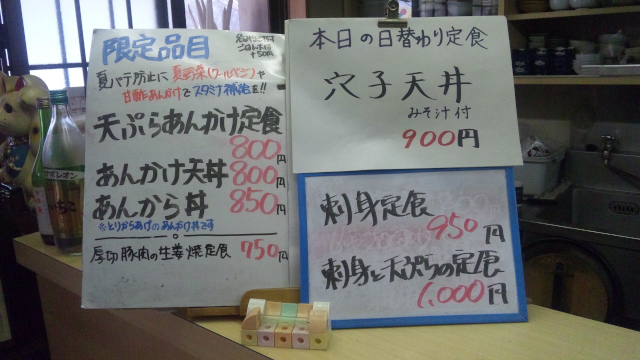 限定品目
夏バテ防止に夏野菜(クールベジ)や
甘酢あんかけでスタミナ補給を!!
天ぷらあんかけ定食
800円
あんかけ天丼 800円
あんから丼 850円
※とりからあげのあんかけ丼です
厚切豚肉の生姜焼定食 750円
本日の日替わり定食
穴子天丼
みそ汁付
900円
刺身定食
950円
刺身と天ぷらの定食
1,000円
ナポレオン